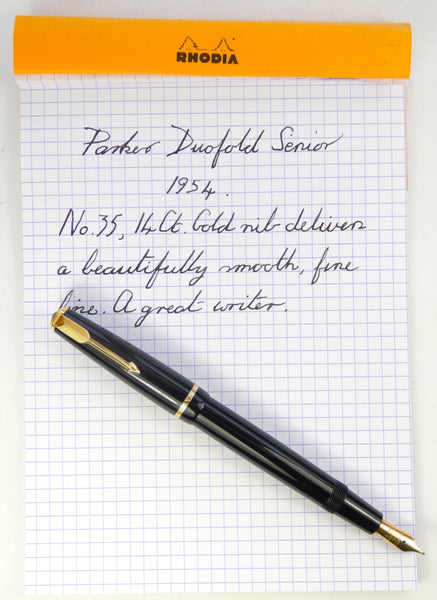 RHODIA
Parker Duofold Senior
1954.
No.35, 14Ct. Gold nib delivers
a beautifully smooth, fine
line. A great writer.